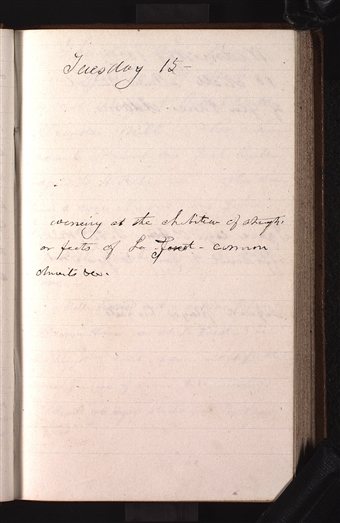 Tuesday 15 -
evening at the exhibition of strength
or feets of La Forest - common